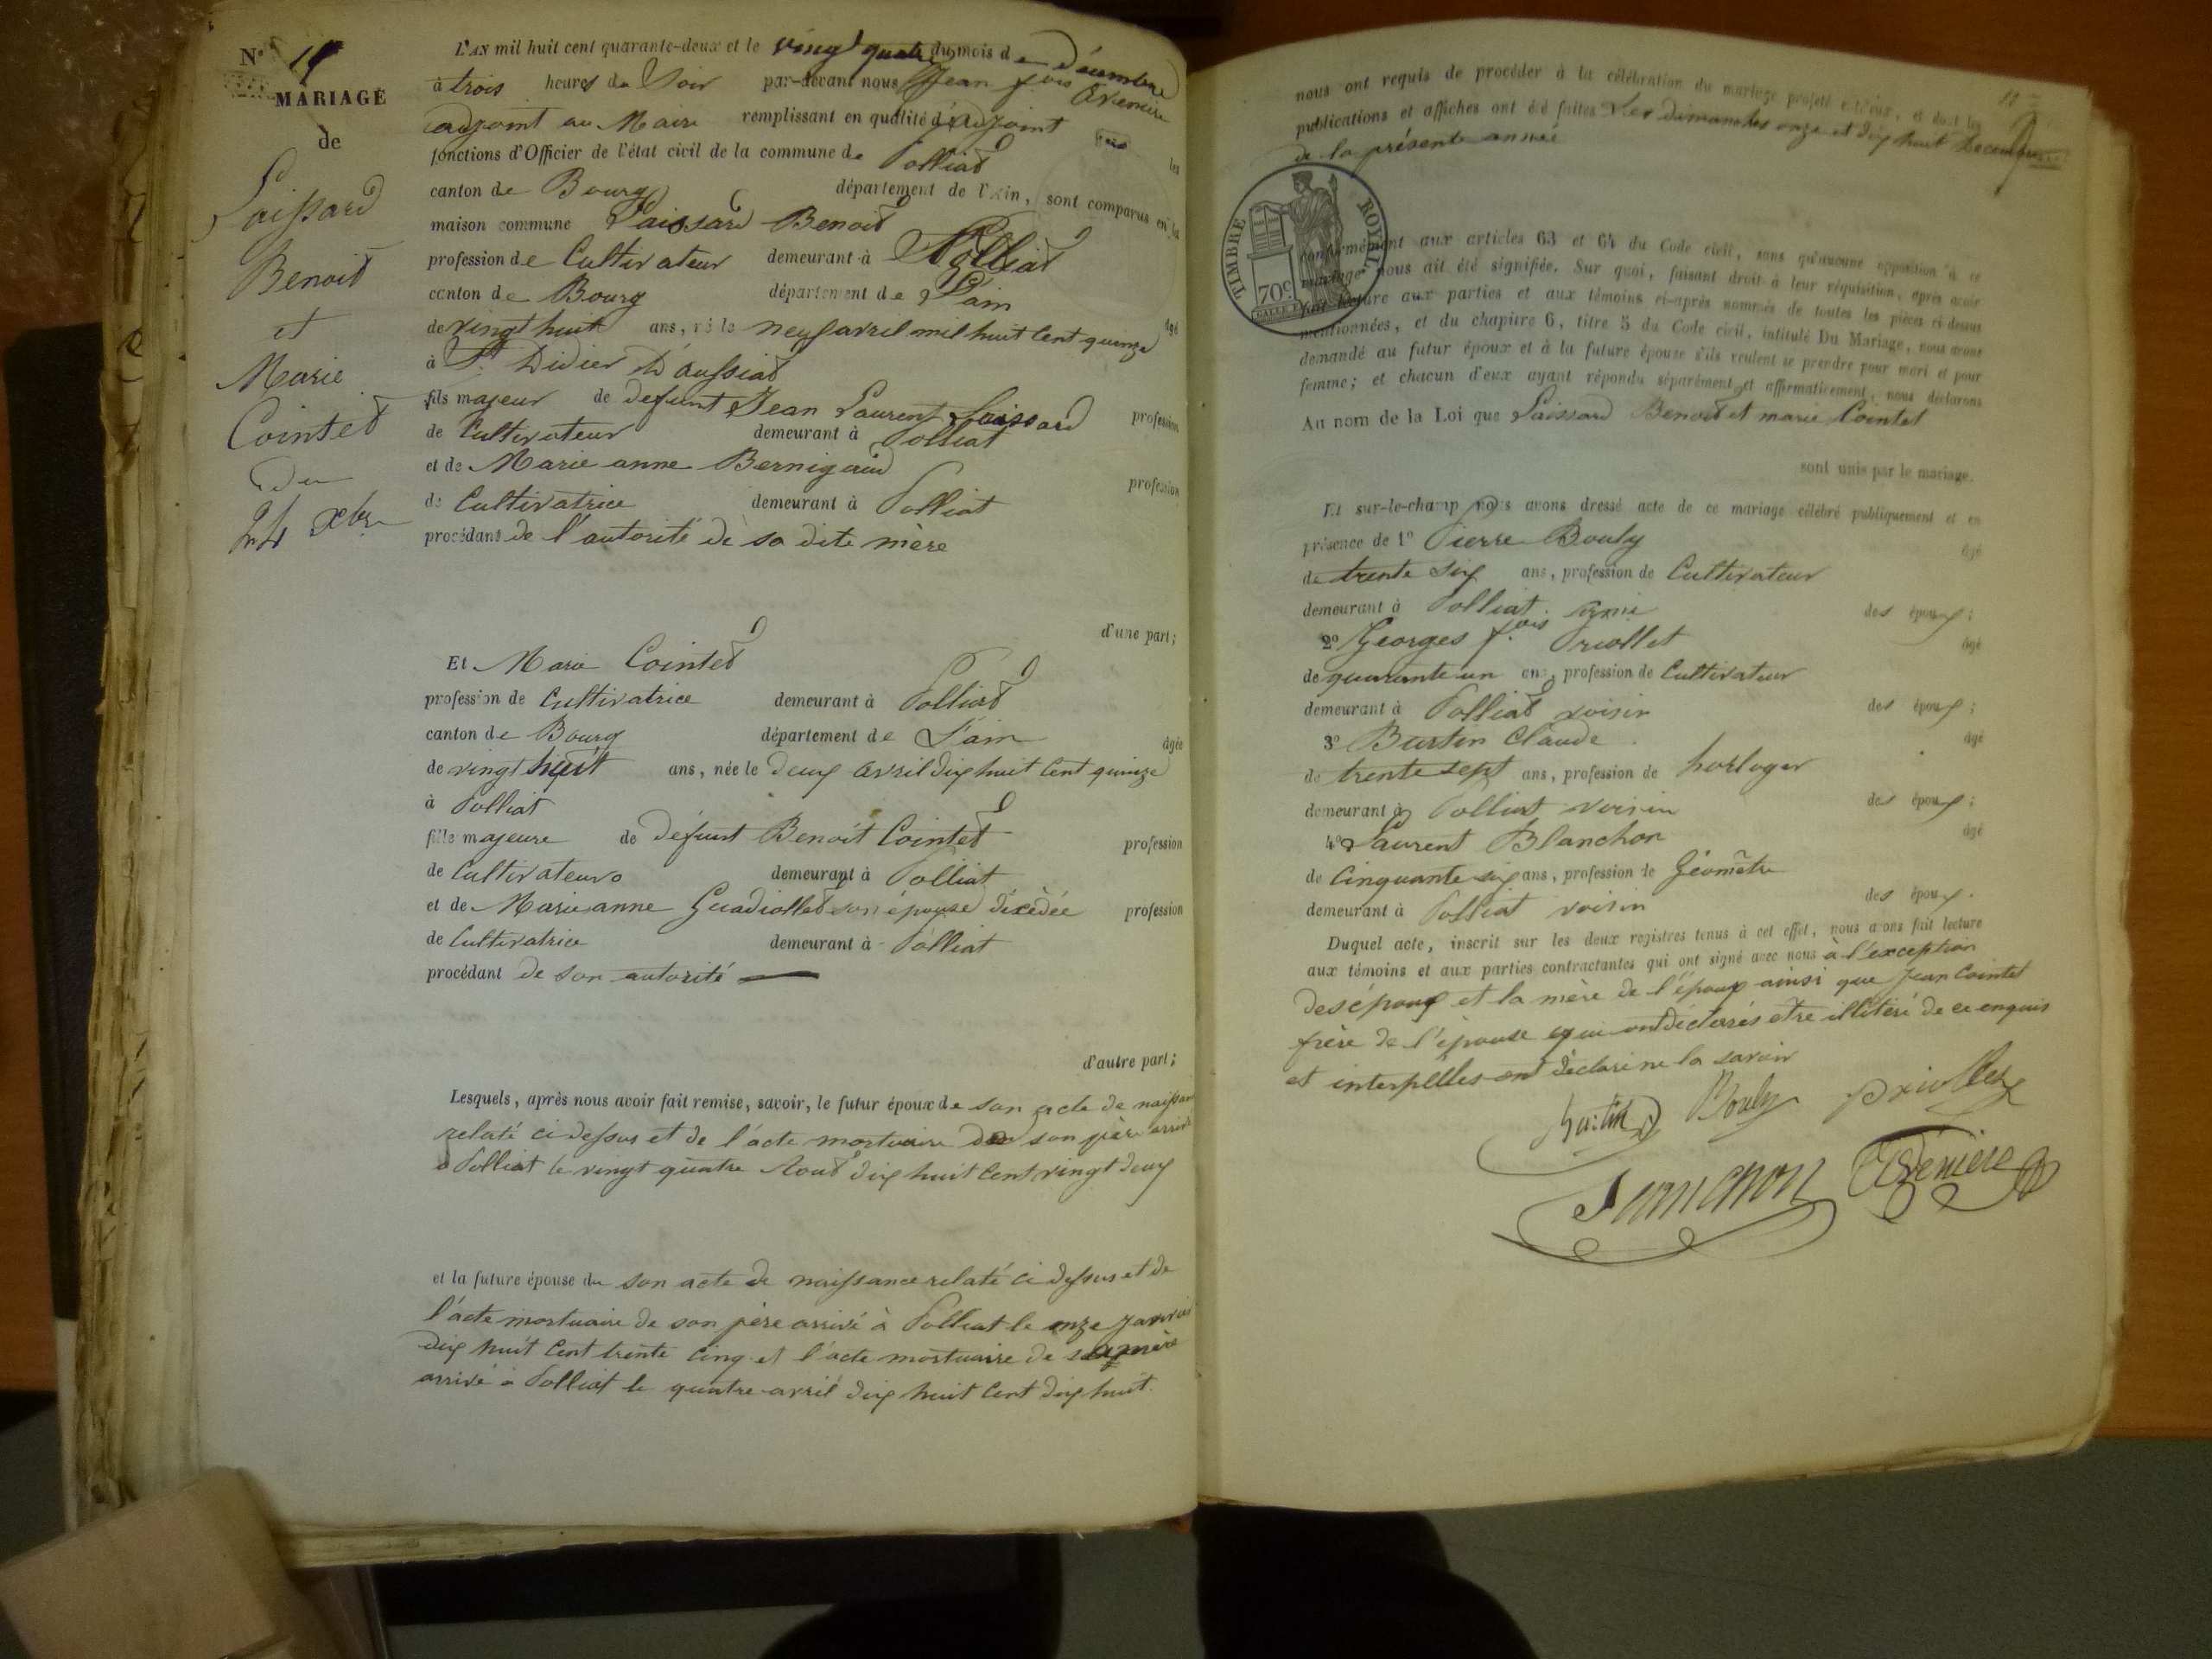 N° 14
MARIAGE
de
Laissard
Benoit
et
Marie
Cointet
du
24 Xbre
L'AN mil huit cent quarante-deux et le vingt quatre du mois de décembre
à trois heures du Soir par-devant nous Jean fois Avenière
adjoint au Maire remplissant en qualité d'adjoint les
fonctions d'Officier de l'état civil de la commune de Polliat
canton de Bourg département de l'Ain, sont comparus en la
maison commune Laissard Benoit
profession de Cultivateur demeurant à Polliat
canton de Bourg département de L'ain âgé
de vingt huit ans, né le neuf avril mil huit Cent quinze
à St Didier D'aussiat
fils majeur de defunt Jean Laurent Laissard profession
de Cultivateur demeurant à Polliat
et de Marie anne Bernigaud profession
de Cultivatrice demeurant à Polliat
procédant de l'autorité de sa dite mère
d'une part;
Et Marie Cointet
profession de Cultivatrice demeurant à Polliat
canton de Bourg département de L'ain âgée
de vingt huit ans, née le deux avril dix huit Cent quinze
à Polliat
fille majeure de défunt Benoit Cointet profession
de Cultivateurs demeurant à Polliat
et de Marie anne son épouse décèdée profession
de Cultivatrice demeurant à Polliat
procédant de son autorité
d'autre part;
Lesquels, après nous avoir fait remise, savoir, le futur époux de son acte de naissan
relaté ci dessus et de l'acte mortuaire de son père arrivé
a Polliat le vingt quatre Aout dix huit Cent vingt deux
et la future épouse du son acte de naissance relaté ci dessus et de
l'acte mortuaire de son père arrivé à Polliat le onze janvier
dix huit Cent trente Cinq et l'acte mortuaire de sa mère
arrivé a Polliat le quatre avril dix huit Cent dix huit.
nous ont requis de procéder à la célébration du mariage projeté entr'eux, et dont les
publications et affiches ont été faites Les dimanches onze et dix huit Decembre
de la présente année
TIMBRE ROYAL
70c
conformément aux articles 63 et 64 du Code civil, sans qu'aucune opposition à ce
mariage nous ait été signifiée. Sur quoi, faisant droit à leur réquisition, après avoir
fait lecture aux parties et aux témoins ci-après nommés de toutes les pièces ci-dessus
mentionnées, et du chapitre 6, titre 5 du Code civil, intitulé Du Mariage, nous avons
demandé au futur époux et à la future épouse s'ils veulent se prendre pour mari et pour
femme; et chacun d'eux ayant répondu séparément et affirmativement, nous déclarons
Au nom de la Loi que Laissard Benoit et marie Cointet
sont unis par le mariage.
Et sur-le-champ nous avons dressé acte de ce mariage célébré publiquement et en
présence de 1° Pierre Bouly âgé
de trente six ans, profession de Cultivateur
demeurant à Polliat. ami des époux;
2° Georges fois Priollet âgé
de quarante un ans, profession de Cultivateur
demeurant à Polliat voisin des époux;
3° Burtin Claude âgé
de trente sept ans, profession de horloger
demeurant à Polliat voisin des époux;
4° Laurent Blanchon âgé
de Cinquante six ans, profession de Géomètre
demeurant à Polliat voisin des époux.
Duquel acte, inscrit sur les deux registres tenus à cet effet, nous avons fait lecture
aux témoins et aux parties contractantes qui ont signé avec nous à l'exception
des époux et la mère de l'époux ainsi que jean Cointet
frère de l'épouse qui ont declarés etre illitéré de ce enquis
et interpelles ont declaré ne la savoir
Burtin Bouly priollet
Avenière